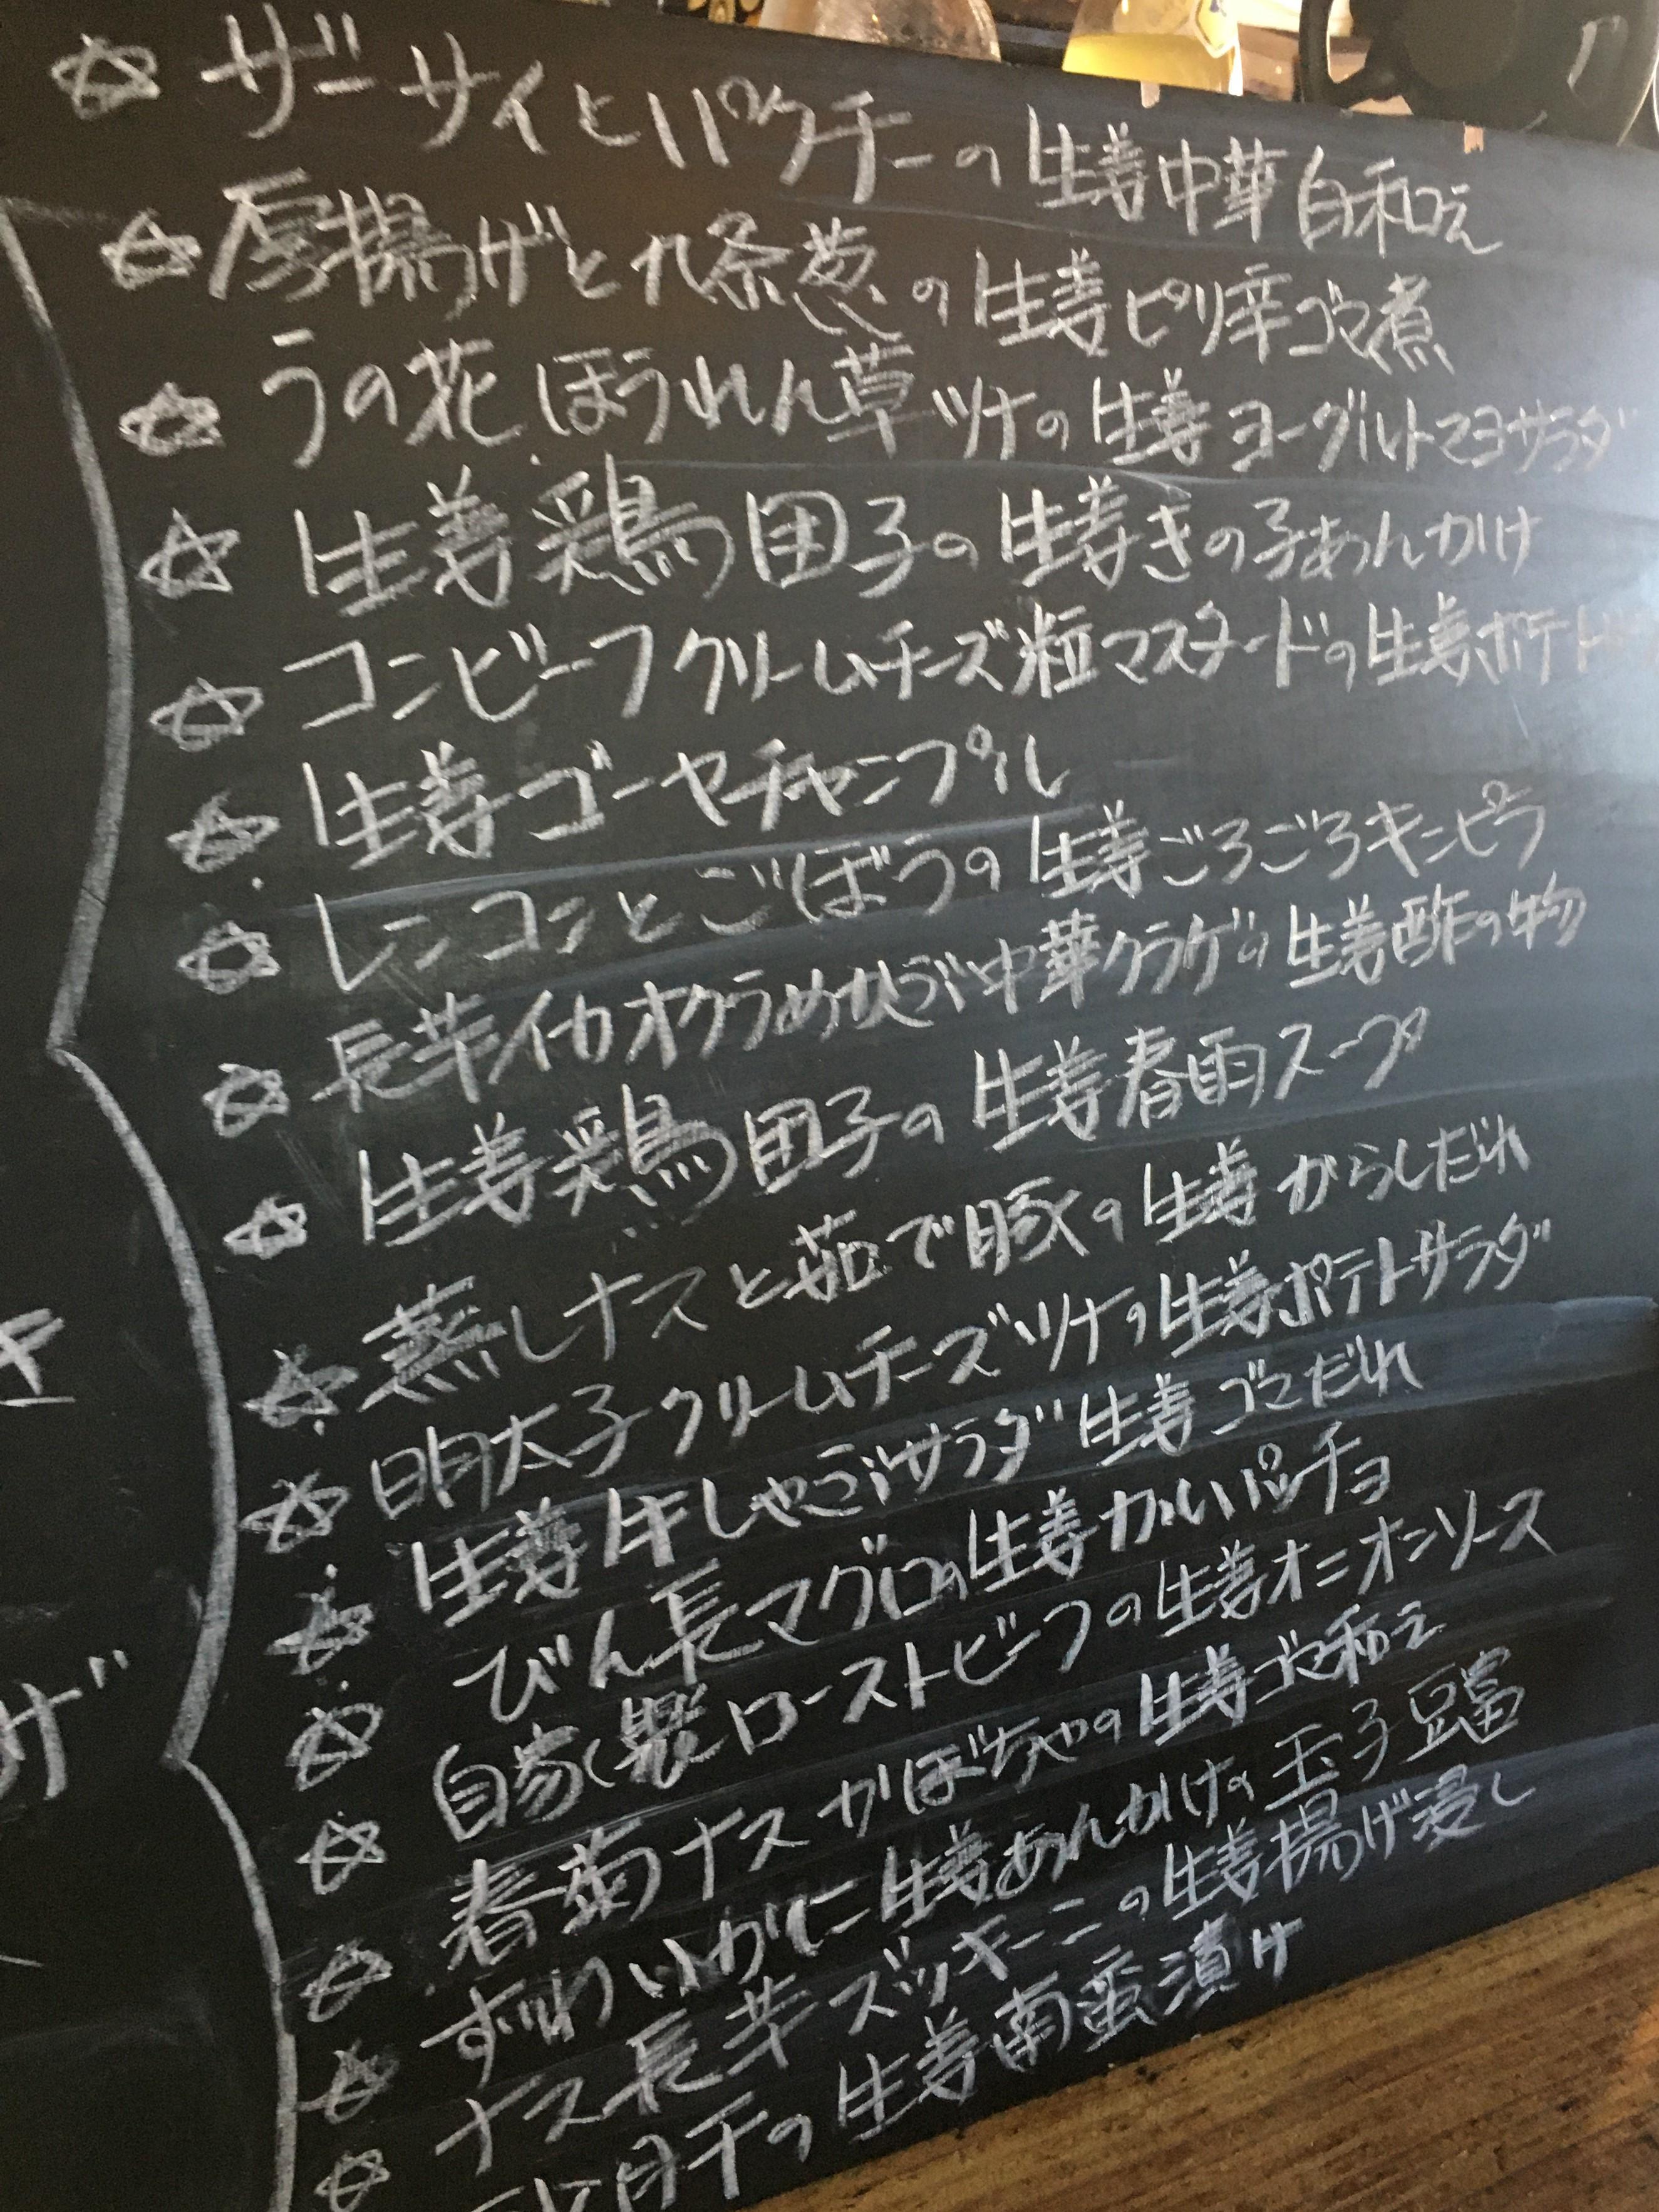 ☆ ザーサイとパクチーの生姜中華白和え
☆ 厚揚げと九条葱の生姜ピリ辛ゴマ煮
☆ うの花ほうれん草ツナの生姜ヨーグルトマヨサラダ
☆ 生姜鶏団子の生姜きの子あんかけ
☆ コンビーフクリームチーズ粒マスタードの生姜ポテト
☆ 生姜ゴーヤチャンプル
☆ レンコンとごぼうの生姜ごろごろキンピラ
☆ 長芋イカオクラめかぶ中華クラゲの生姜酢の物
☆ 生姜鶏団子の生姜春雨スープ
☆ 蒸しナスと茹で豚の生姜からしだれ
☆ 明太子クリームチーズツナの生姜ポテトサラダ
☆ 生姜牛しゃぶサラダ生姜ゴマだれ
☆ びん長マグロの生姜カルパッチョ
☆ 自家製ローストビーフの生姜オニオンソース
☆ 春菊ナスかぼちゃの生姜ゴマ和え
☆ ずわいがに生姜あんかけの玉子豆富
☆ ナス長芋ズッキーニの生姜揚げ浸し
☆ の生姜南蛮漬け